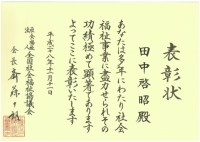 表彰状
田中啓昭殿
あなたは多年にわたり社会
福祉事業に尽力せられその
功績極めて顕著であります
よってここに表彰いたします
平成二八年十一月十一日
社会福祉法人
全国社会福祉協議会
会長 斎藤十朗